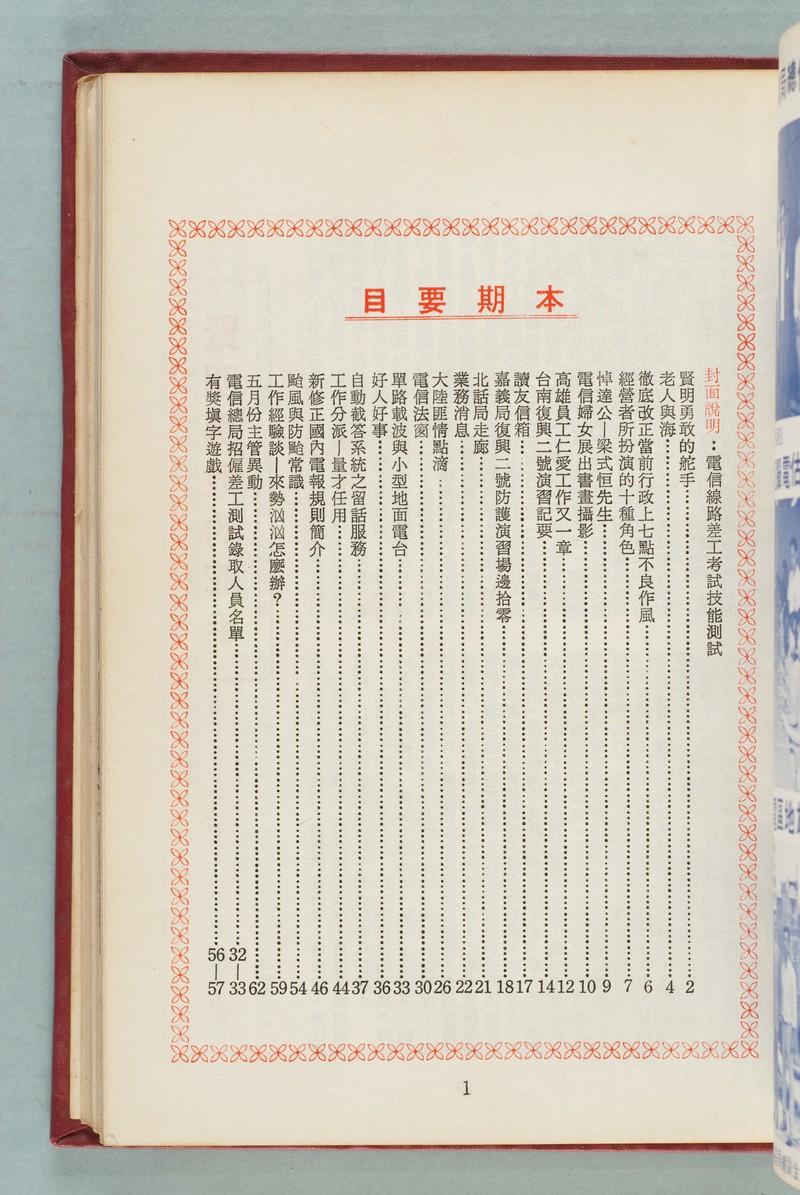 本期要目
封面說明：電信線路差工考試技能測試
賢明勇敢的舵手……2
老人與海……4
徹底改正當前行政上七點不良作風……6
經營者所扮演的十種角色……7
悼達公—梁式恒先生……9
電信婦女展出書畫攝影……10
高雄員工仁愛工作又一章……12
台南復興二號演習記要……14
讀友信箱……17
嘉義局復興二號防護演習場邊拾零……18
北話局走廊……21
業務消息……22
大陸匪情點滴……26
電信法窗……30
單路載波與小型地面電台……33
好人好事……36
自動截答系統之留話服務……37
工作分派—量才任用……44
新修正國內電報規則簡介……46
颱風與防颱常識……54
工作經驗談—來勢汹汹怎麽辦？……59
五月份主管異動……62
電信總局招僱差工測試錄取人員名單……32—33
有獎填字遊戲……56—57
1